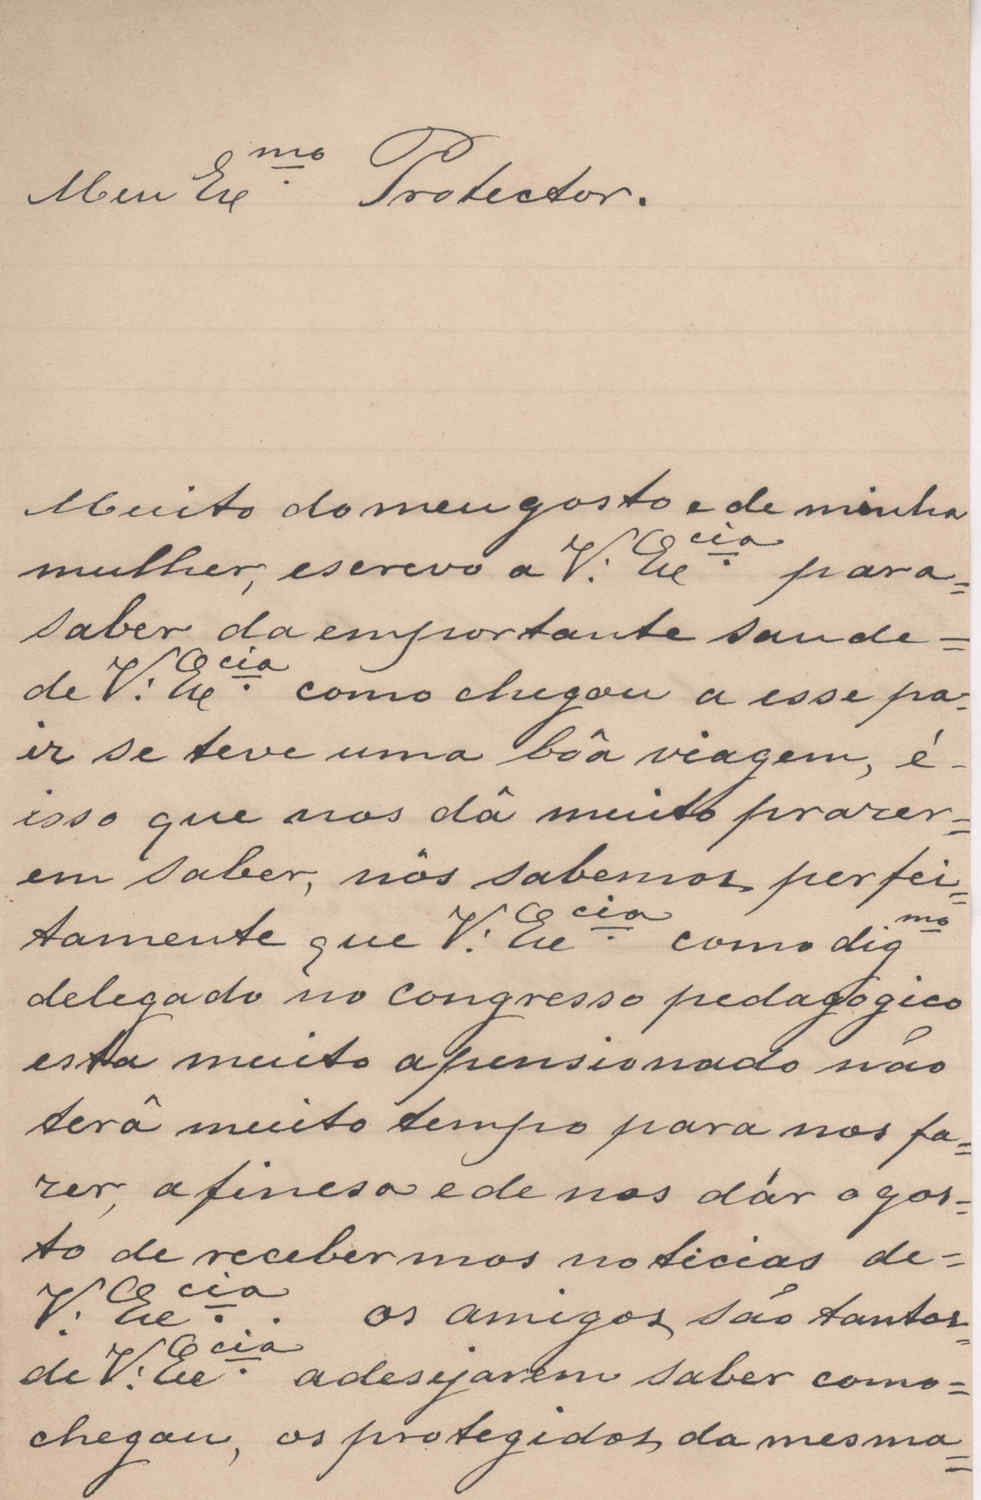 Meu Ex.mo Protector.
Muito do meu gosto e de minha
mulher, escrevo a V. Ex.cia para=
saber da emportante saude=
de V. Ex.cia como chegou a esse pa-
iz se teve uma bôa viagem, é-
isso que nos dâ muito prazer=
em saber, nôs sabemos perfei=
tamente que V. Ex.cia como dig.mo
delegado no congresso pedagogico
esta muito apensionado não
terâ muito tempo para nos fa=
zer, a finesa e de nos dár o gos=
to de recebermos noticias de=
V. Ex.cia. os amigos são tantos=
de V. Ex.cia a desejarem saber como=
chegou, os protegidos da mesma=